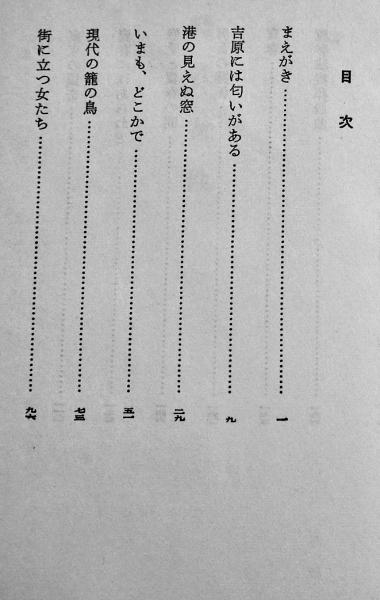 目次
まえがき……………………………一
吉原には匂いがある……………………………九
港の見えぬ窓……………………………二九
いまも、どこかで……………………………五一
現代の籠の鳥……………………………七三
街に立つ女たち……………………………九六